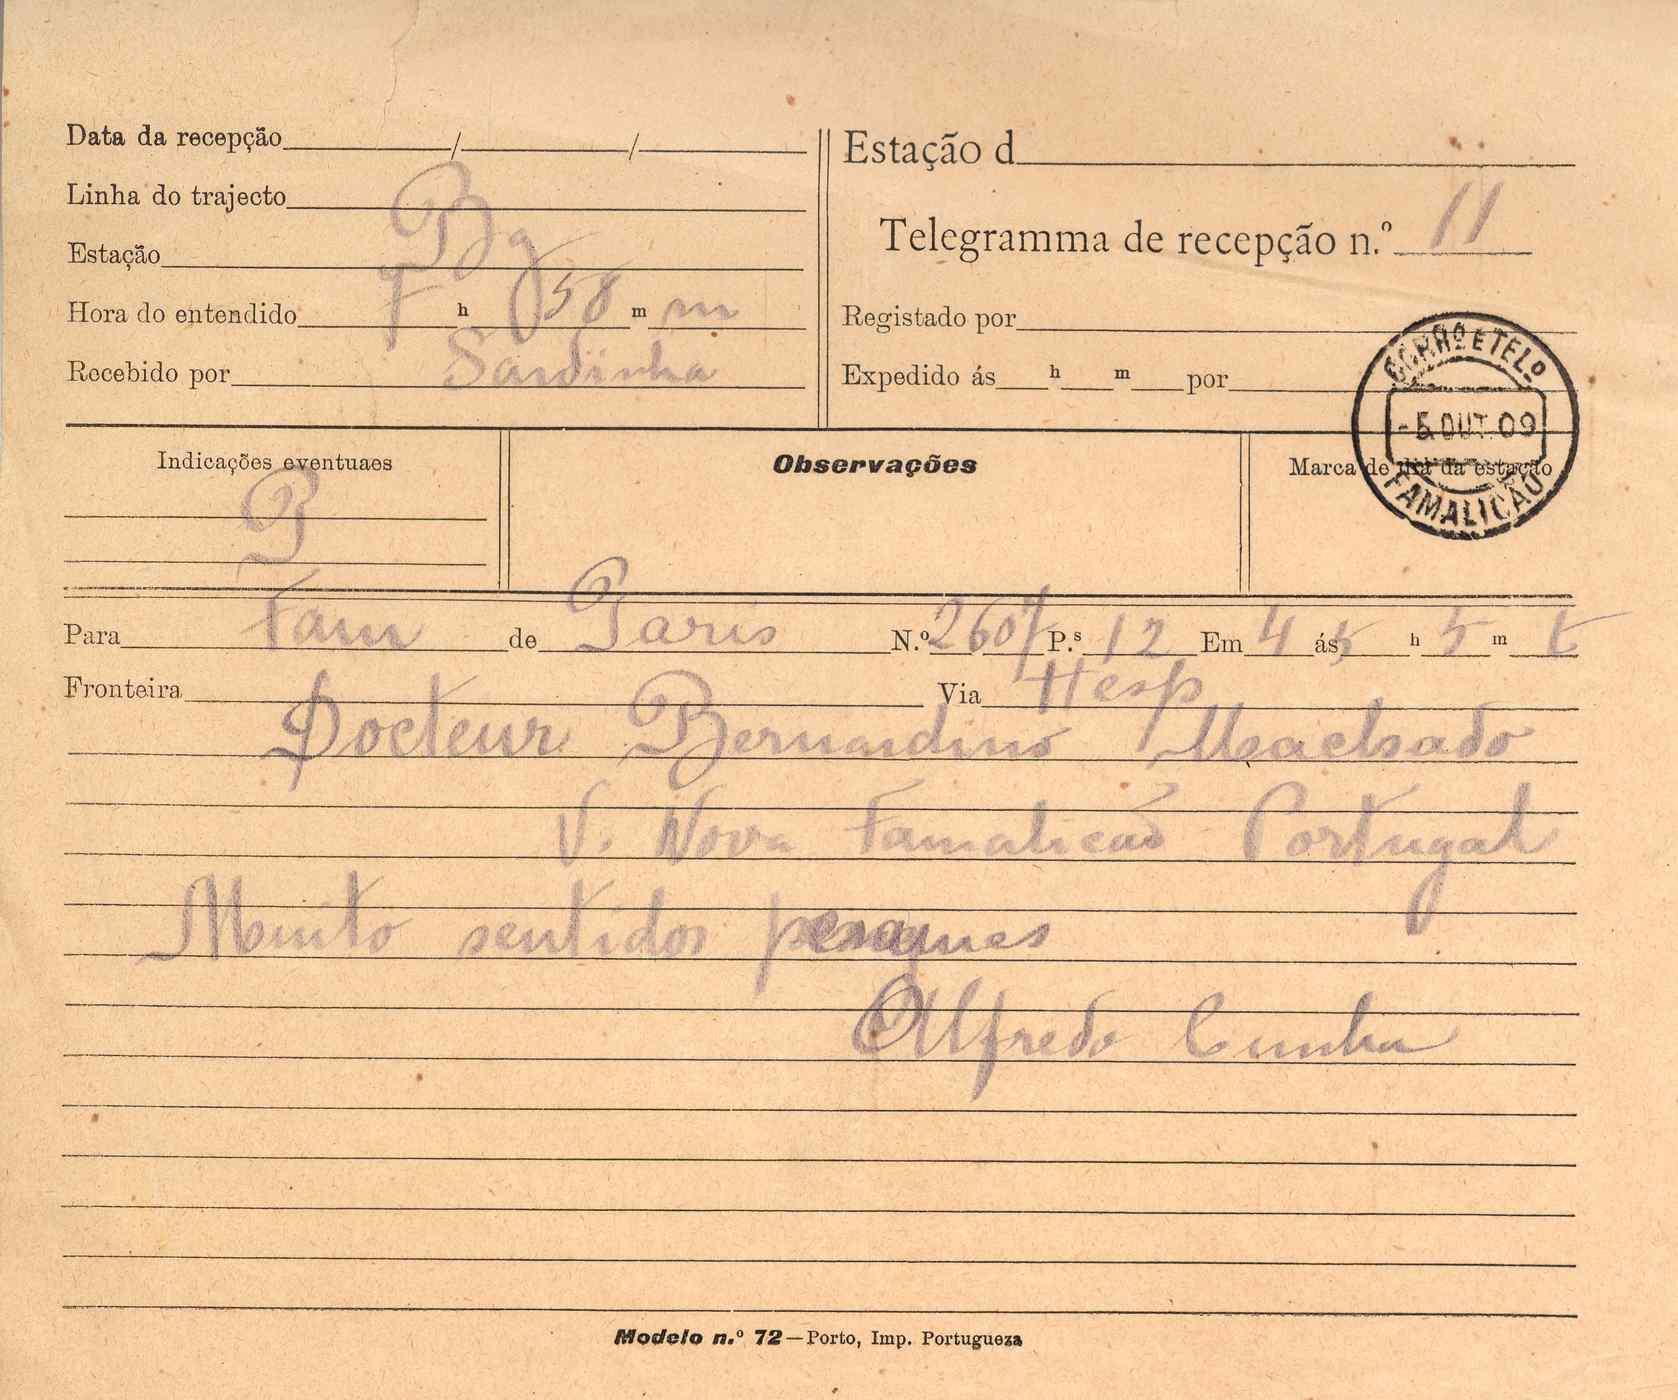 Data da recepção / /
Linha do trajecto
Estação Bg
Hora do entendido 7 h 58 m m
Recebido por Sardinha
Estação d
Telegramma de recepção n.º 11
Registado por
Expedido ás h m por
CORRº E TELº
-5 OUT. 09
FAMALICÃO
Indicações eventuaes
P
Observações
Marca de dia da estação
Para Fam de Paris N.º 2607 P.s 12 Em 4 ás 5 h 5 m t
Fronteira Via Hesp
Docteur Bernardino Machado
V. Nova Famalicão Portugal
Muito sentidos
Alfredo Cunha
Modelo n.º 72—Porto, Imp. Portugueza